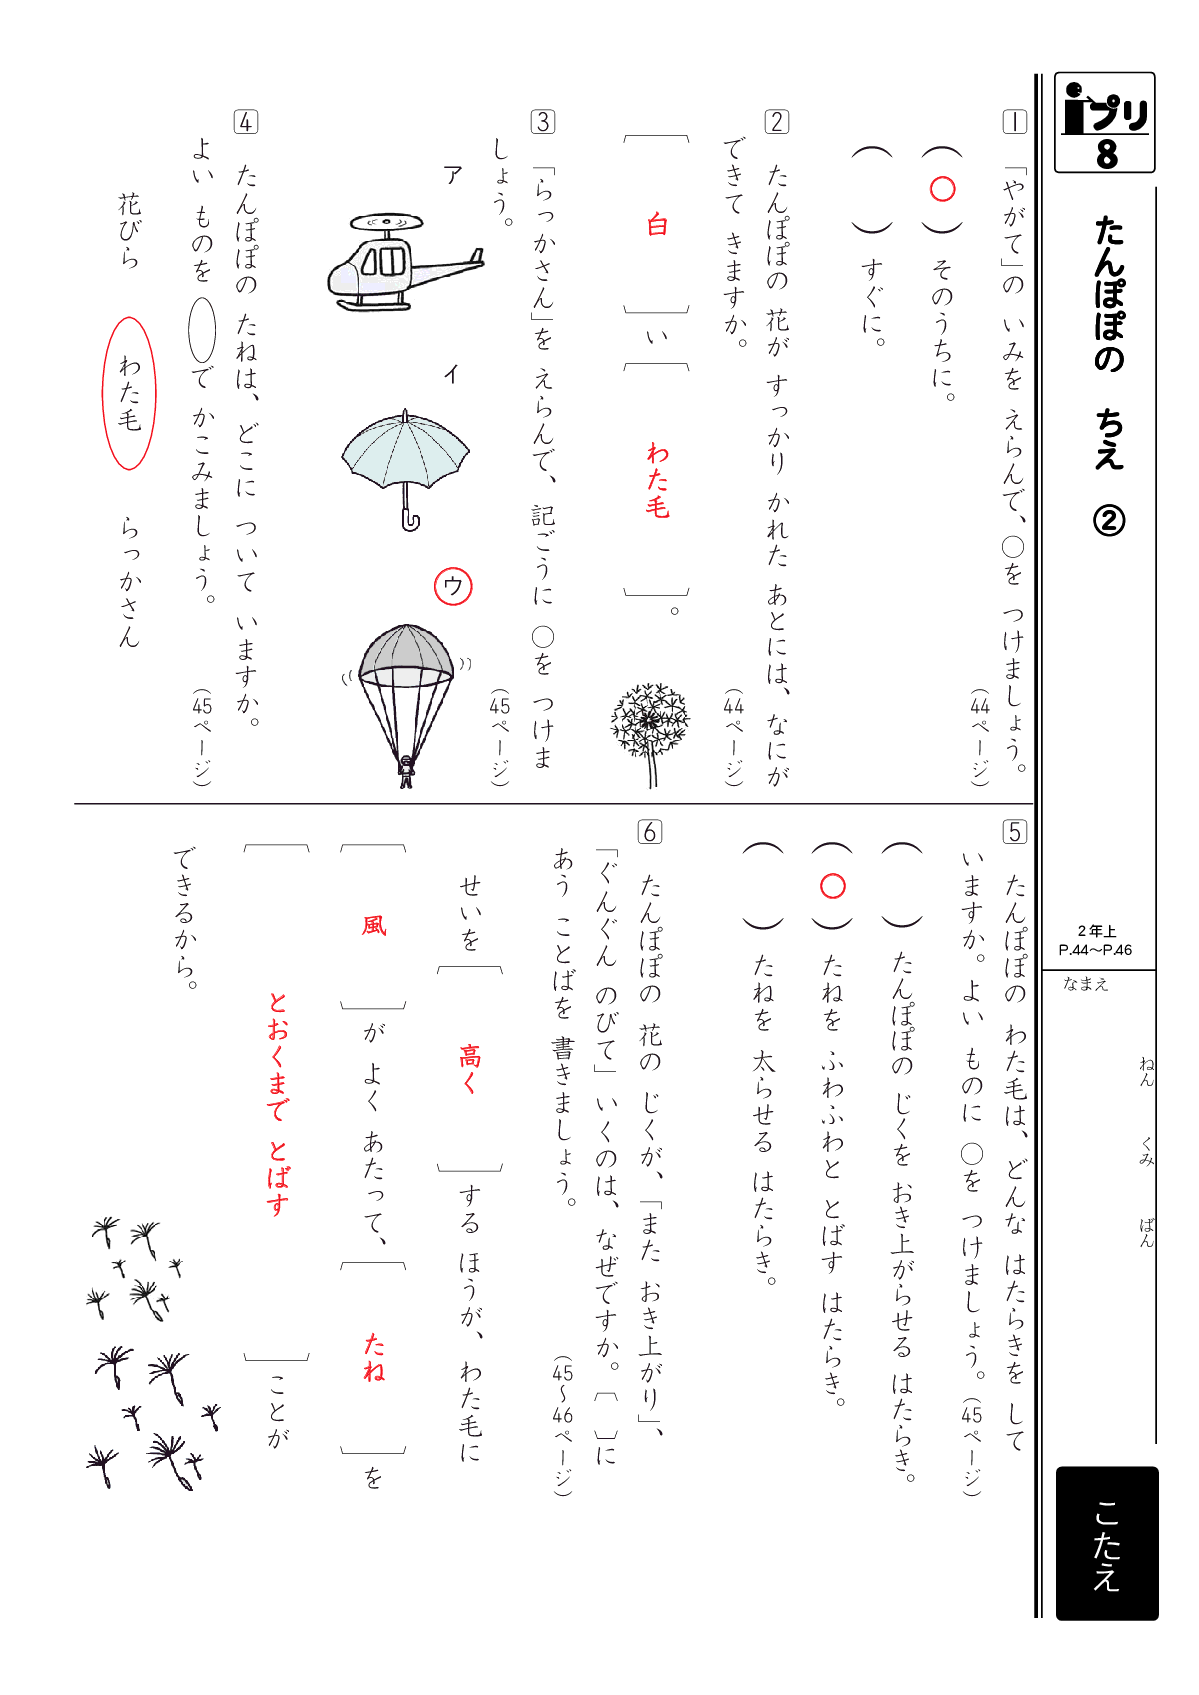 iプリ
8
たんぽぽの　ちえ　②
2年上
P.44～P.46
なまえ
ねん　くみ　ばん
こたえ
1　「やがて」の　いみを　えらんで、○を　つけましょう。
（44ページ）
（○）　そのうちに。
（　）　すぐに。
2　たんぽぽの　花が　すっかり　かれた　あとには、なにが
できて　きますか。
（44ページ）
〔白〕い〔わた毛〕。
3　「らっかさん」を　えらんで、記ごうに　○を　つけま
しょう。
（45ページ）
ア
イ
ウ
4　たんぽぽの　たねは、どこに　ついて　いますか。
よい　ものを　○で　かこみましょう。
（45ページ）
花びら　わた毛　らっかさん
5　たんぽぽの　わた毛は、どんな　はたらきを　して
いますか。よい　ものに　○を　つけましょう。（45ページ）
（　）　たんぽぽの　じくを　おき上がらせる　はたらき。
（○）　たねを　ふわふわと　とばす　はたらき。
（　）　たねを　太らせる　はたらき。
6　たんぽぽの　花の　じくが、「また　おき上がり」、
「ぐんぐん　のびて」いくのは、なぜですか。〔　〕に
あう　ことばを　書きましょう。
（45～46ページ）
せいを〔高く〕する　ほうが、わた毛に
〔風〕が　よく　あたって、〔たね〕を
〔とおくまで　とばす〕ことが
できるから。